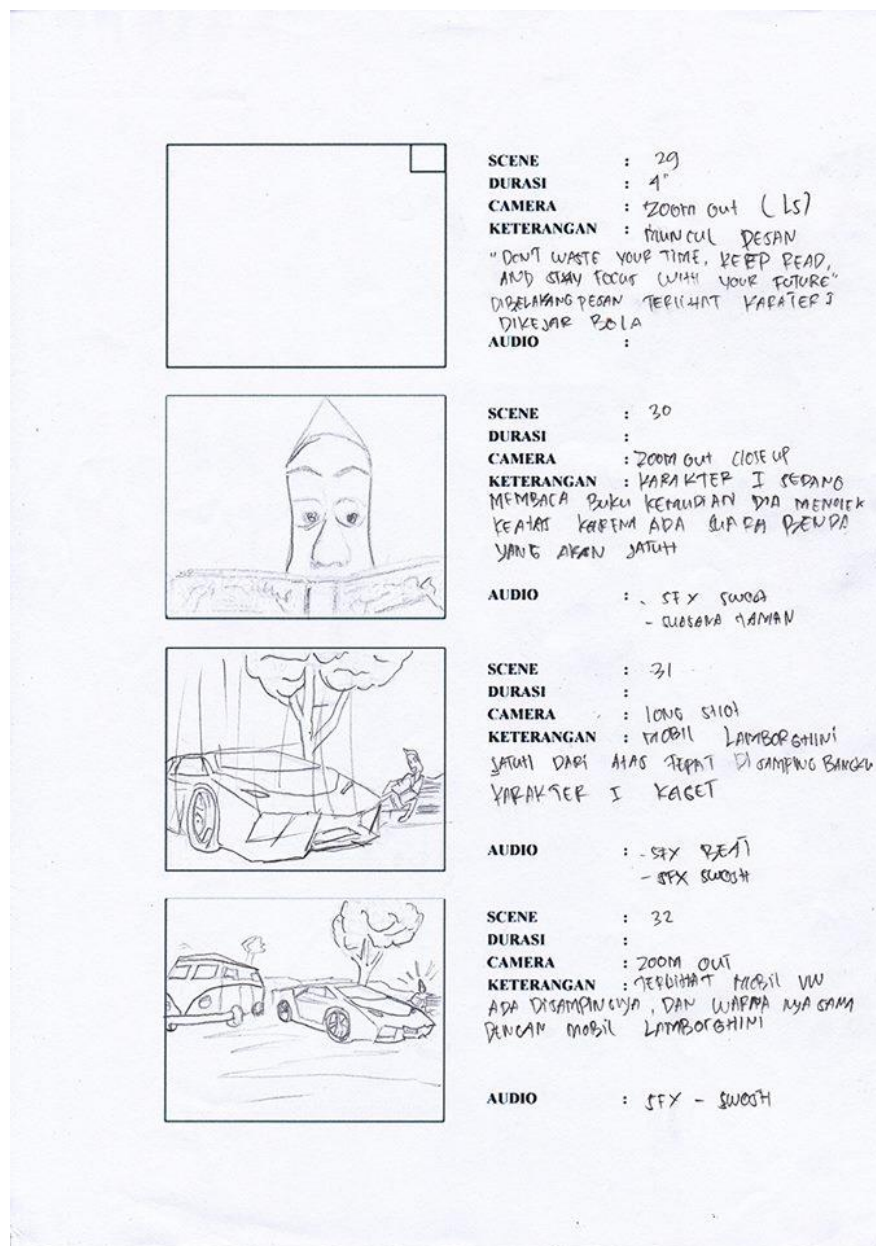 SCENE : 29
DURASI : 4"
CAMERA : ZOOM OUT (LS)
KETERANGAN : MUNCUL PESAN
"DON'T WASTE YOUR TIME, KEEP READ,
AND STAY FOCUS WITH YOUR FUTURE"
DIBELAKANG PESAN TERLIHAT KARATER I
DIKEJAR BOLA
AUDIO :
SCENE : 30
DURASI :
CAMERA : ZOOM OUT CLOSE UP
KETERANGAN : KARAKTER I SEDANG
MEMBACA BUKU KEMUDIAN DIA MENOLEK
KEATAS KARENA ADA SUARA BENDA
YANG AKAN JATUH
AUDIO : - SFX
- SUASANA TAMAN
SCENE : 31
DURASI :
CAMERA : LONG SHOT
KETERANGAN : MOBIL LAMBORGHINI
JATUH DARI ATAS TEPAT DISAMPING BANGKU
KARAKTER I KAGET
AUDIO : - SFX BEAT
- SFX SWOSH
SCENE : 32
DURASI :
CAMERA : ZOOM OUT
KETERANGAN : TERLIHAT MOBIL VW
ADA DISAMPINGNYA, DAN WARNA NYA SAMA
DENGAN MOBIL LAMBORGHINI
AUDIO : SFX - SWOSH